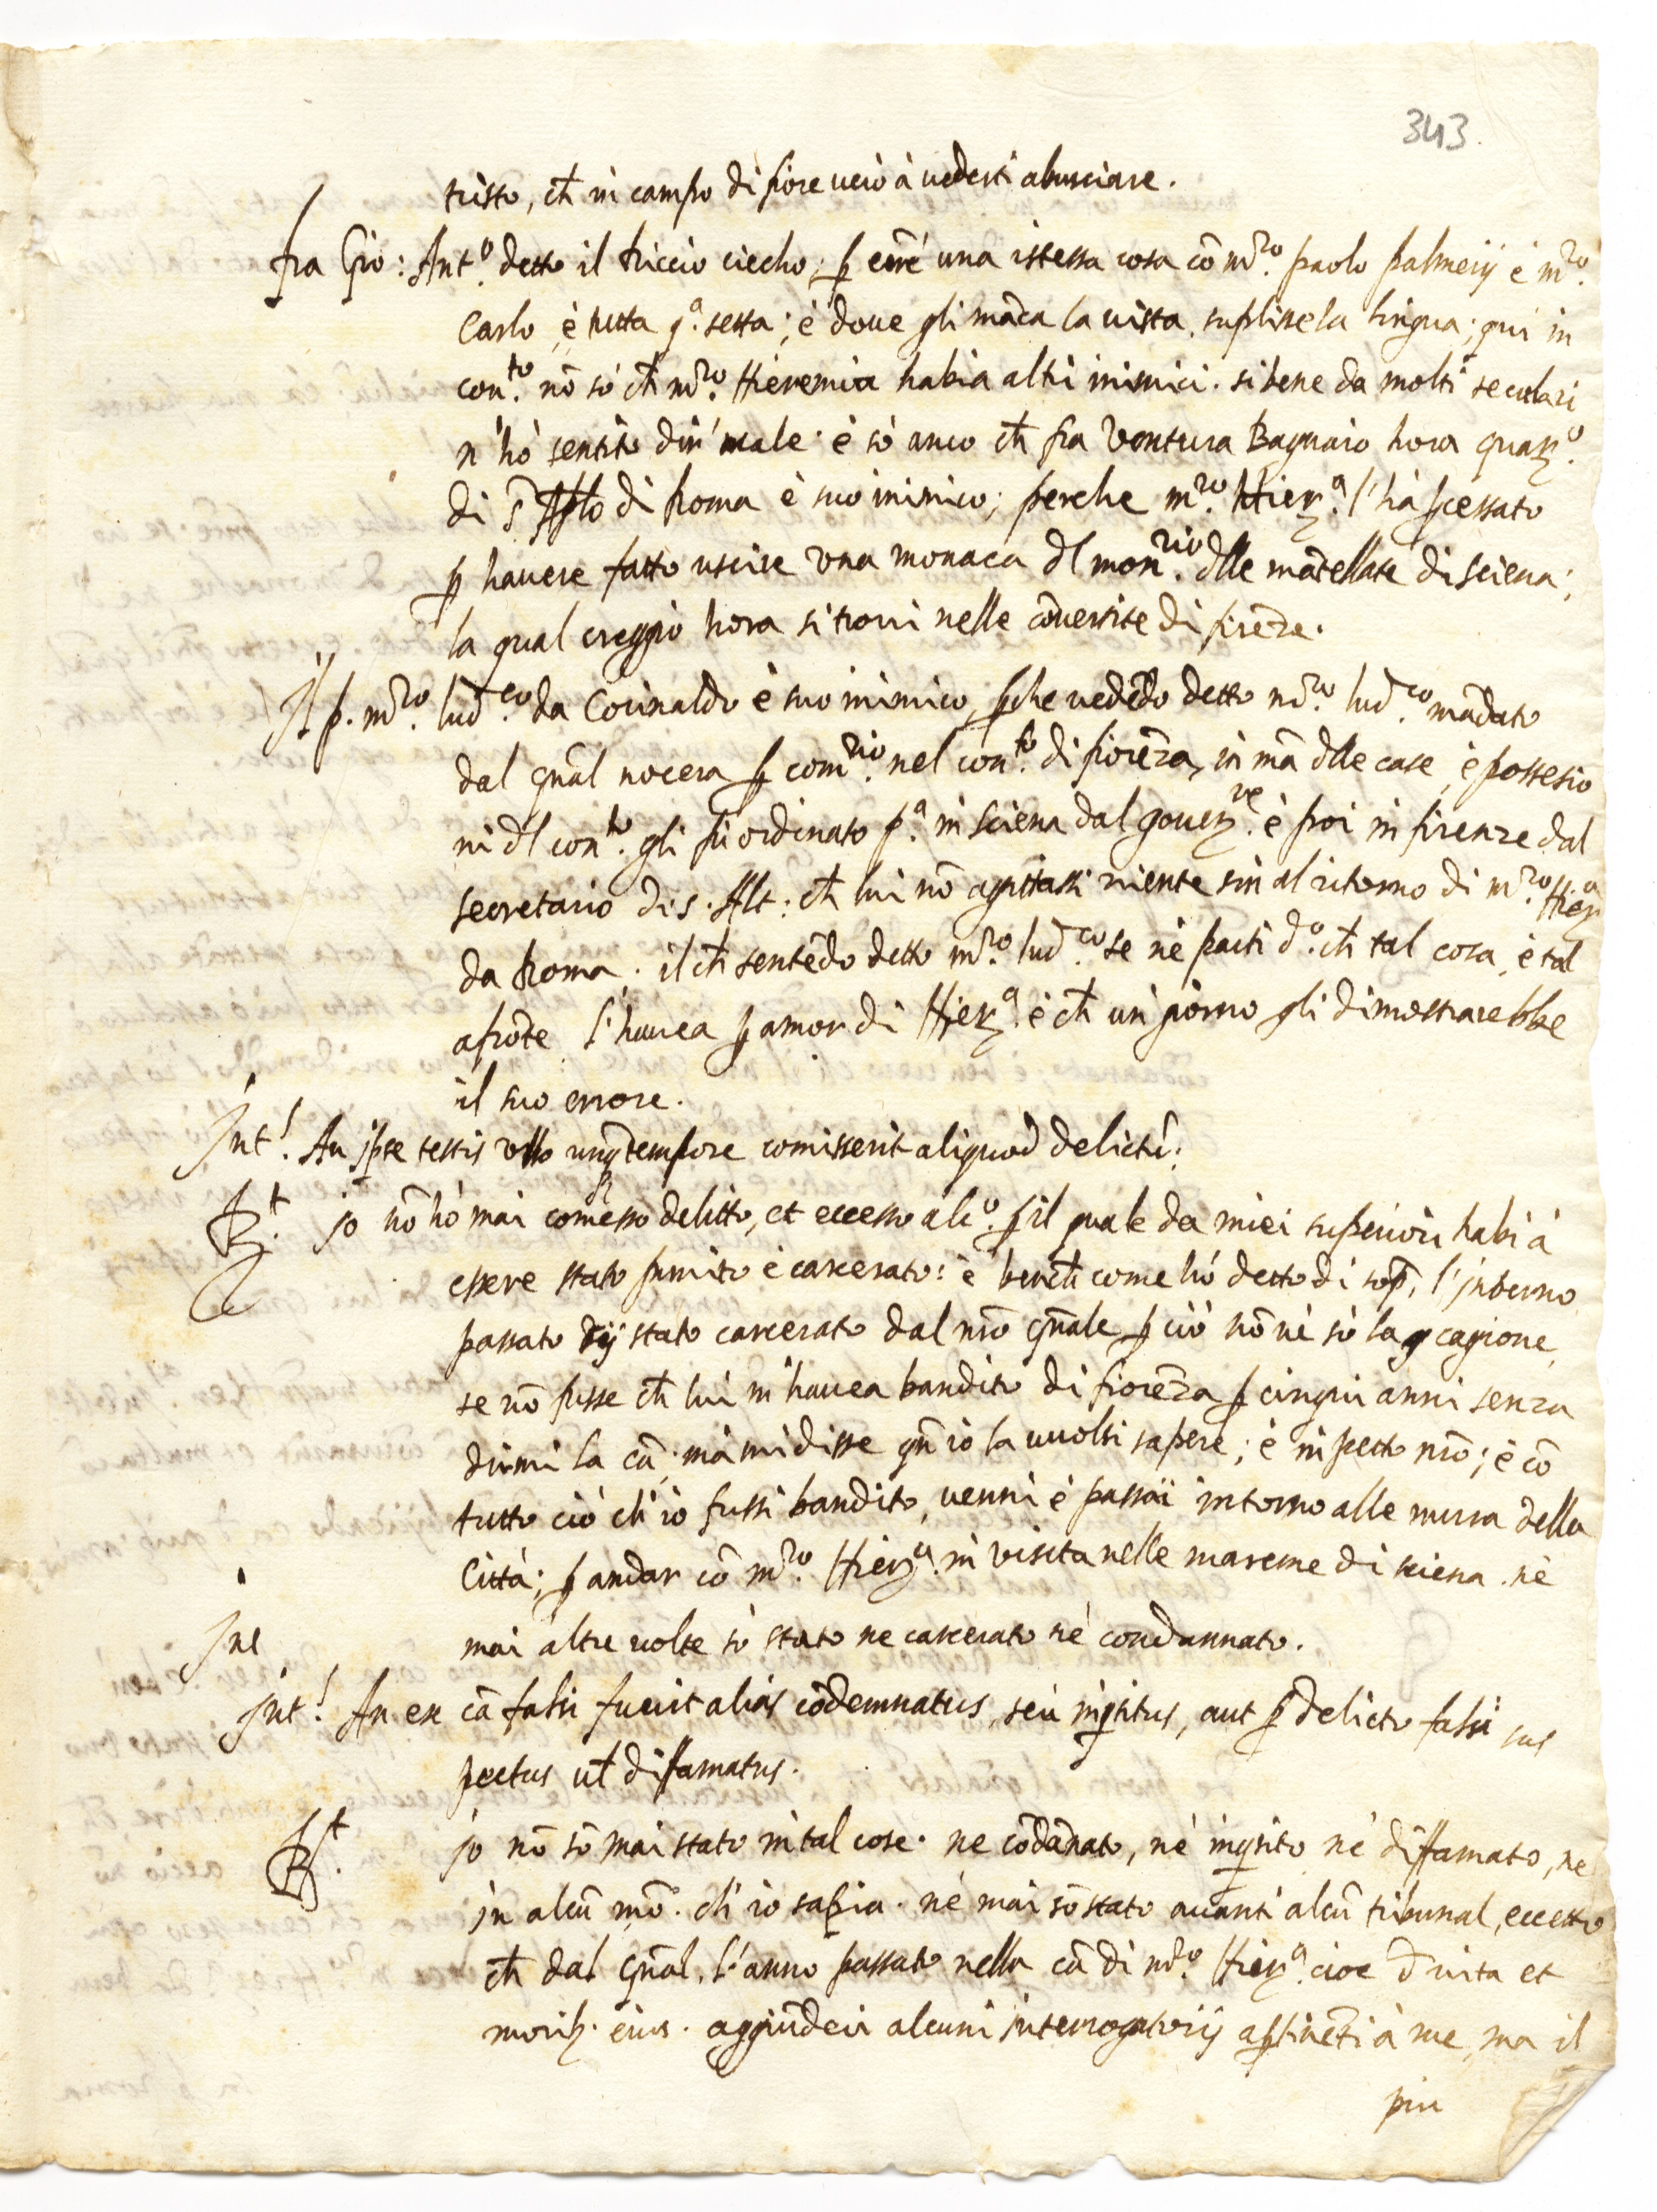 343.
tristo, ch̃ in campo di fiore verò à vederti abusciare.
fra Gio: Ant.º detto il Riccio ciecho; ꝑ eẽrè una istessa cosa cõ m.ro paolo palmerij è m.ro
Carlo, è tutta q.ª setta; è doue gli mãca la uista, suplisse la lingua; qui in
con.to nõ sò ch̃ m.ro Hieremia habia altri inimici. si bene da molti secolari
n'hò sentito dir' male. è sò anco ch̃ fra Ventura Bagnaio hora guar.º
di s.º Aplo di Roma è suo inimico; perche m.ro Hier.ª l'hà pcessato
ꝑ hauere fatto uscire una monaca dl mon.rio dlle mãtellate di Sciena;
la qual creggio hora si troui nelle cõuertite di firẽze.
Il p. m.ro lud.co da Corinaldo è suo inimico, ꝑche vedẽdo detto m.ro lud.co mãdato
dal gñal nocera ꝑ com.rio nel con.to di fiorẽza, in mã dlle case, è possesio
ni dl con.to gli fù ordinato p.ª in sciena dal gouer.re è poi in firenze dal
secretario di s. Alt: ch̃ lui nõ aspettassi niente sin al ritorno di m.ro Hier.ª
da Roma. il ch̃ sentẽdo detto m.ro lud.co se nè parti d.º ch̃ tal cosa, è tal
afrõte l'hauea ꝑ amor di Hier.ª è ch̃ un' giorno gli dimostrarebbe
il suo errore.
Int! An ipse testis ullo unq̃ tempore comisserit aliquod delictũ;
R.t jo nõ hò mai comesso delitto, et eccesso alc.º ꝑ il quale da miei superiori habi à
essere stato punito è carcerato: è bench̃ come hò detto di sop̃, l'inberno
passato sij stato carcerato dal nrõ gñale ꝑ ciò nõ nè sò la cagione,
se nõ fusse ch̃ lui m'hauea bandito di fiorẽza ꝑ cinqui anni senza
dirmi la cã; mà mi disse qñ iò la vuolsi sapere; è in petto nrõ; è cõ
tutto ciò ch'iò fussi bandito, venni è passai intorno alle mura della
Città; ꝑ andar cõ m.ro Hier.ª in visita nelle mareme di sciena. nè
Ine mai altre volte sò stato ne carcerato nè condannato.
Int! An ex cã falsi fuerit alias cõdemnatus, seù inq̃situs, aut ꝑ delicto falsi sus
pectus ul̃ diffamatus.
R.t jo nõ sõ mai stato in tal cose. ne cõdãnato, nè inq̃sito nè diffamato, ne
in alcũ mõ. ch'iò sapia. nè mai sõ stato auanti alcũ tribunal, eccetto
ch̃ dal gñal. l'anno passato nella cã di m.ro Hier.ª cioe d̃ vita et
morib. eius. aggiũdeci alcuni interrogatorij aptinẽti à me, ma il
piu